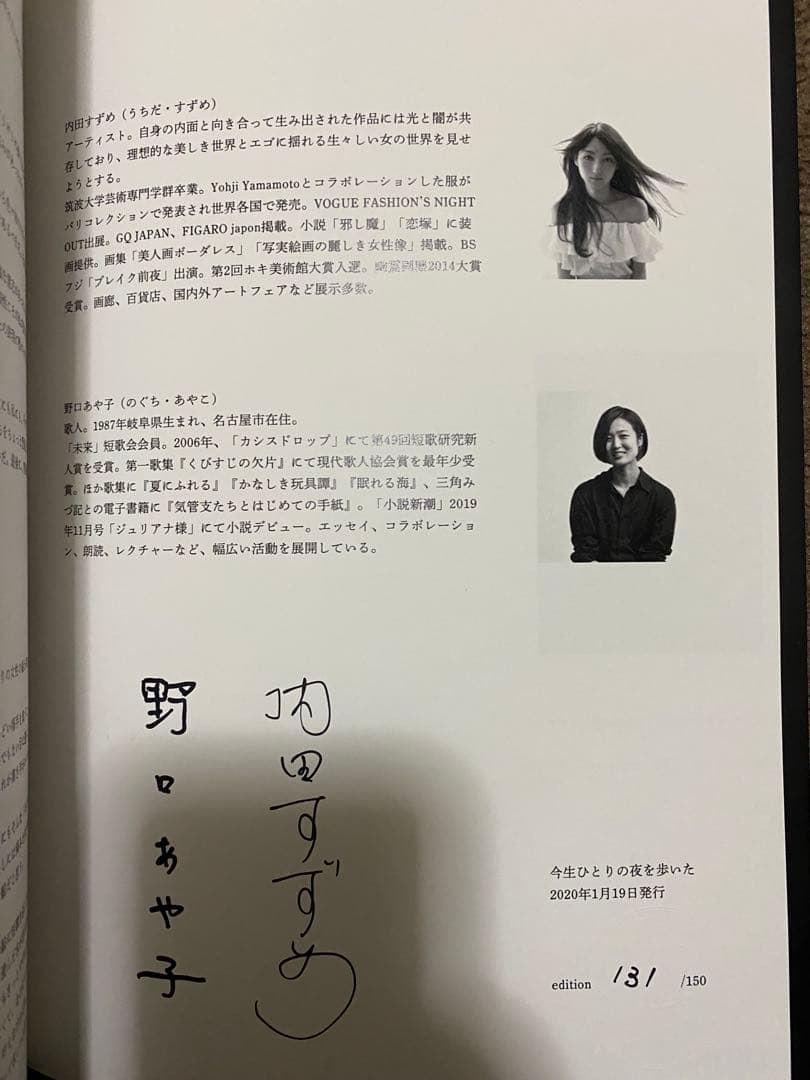 内田すずめ（うちだ・すずめ）
アーティスト。自身の内面と向き合って生み出された作品には光と闇が共
存しており、理想的な美しき世界とエゴに揺れる生々しい女の世界を見せ
ようとする。
筑波大学芸術専門学群卒業。Yohji Yamamotoとコラボレーションした服が
パリコレクションで発表され世界各国で発売。VOGUE FASHION'S NIGHT
OUT出展。GQ JAPAN、FIGARO japon掲載。小説「邪し魔」「恋塚」に装
画提供。画集「美人画ボーダレス」「写実絵画の麗しき女性像」掲載。BS
フジ「ブレイク前夜」出演。第2回ホキ美術館大賞入選。幽霊画展2014大賞
受賞。画廊、百貨店、国内外アートフェアなど展示多数。
野口あや子（のぐち・あやこ）
歌人。1987年岐阜県生まれ、名古屋市在住。
「未来」短歌会会員。2006年、「カシスドロップ」にて第49回短歌研究新
人賞を受賞。第一歌集『くびすじの欠片』にて現代歌人協会賞を最年少受
賞。ほか歌集に『夏にふれる』『かなしき玩具譚』『眠れる海』、三角み
づ記との電子書籍に『気管支たちとはじめての手紙』。「小説新潮」2019
年11月号「ジュリアナ様」にて小説デビュー。エッセイ、コラボレーショ
ン、朗読、レクチャーなど、幅広い活動を展開している。
内田すずめ
野口あや子
今生ひとりの夜を歩いた
2020年1月19日発行
edition 131 /150